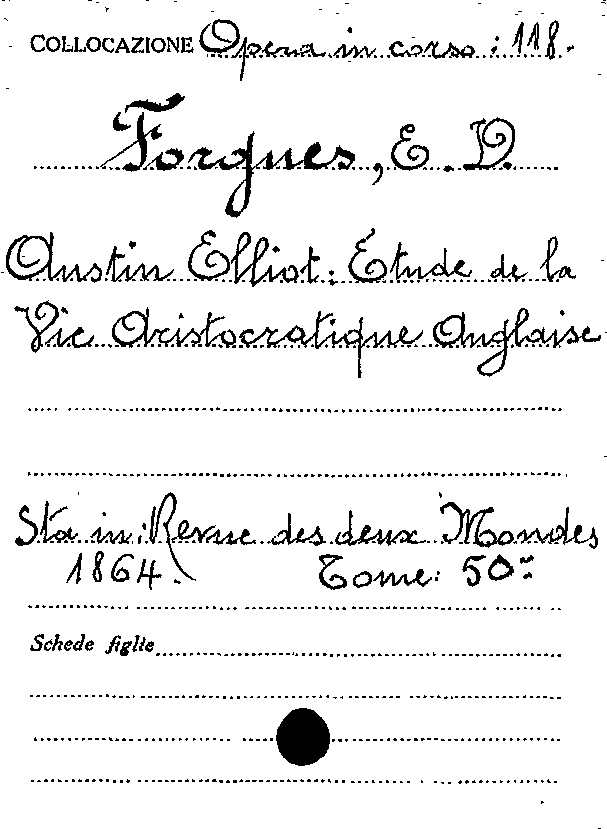 COLLOCAZIONE Opera in corso: 118.
Forgues, E. D.
Austin Elliot: Etude de la
Vie Aristocratique Anglaise
Sta in: Revue des deux Mondes
1864. Tome: 50º
Schede figlie